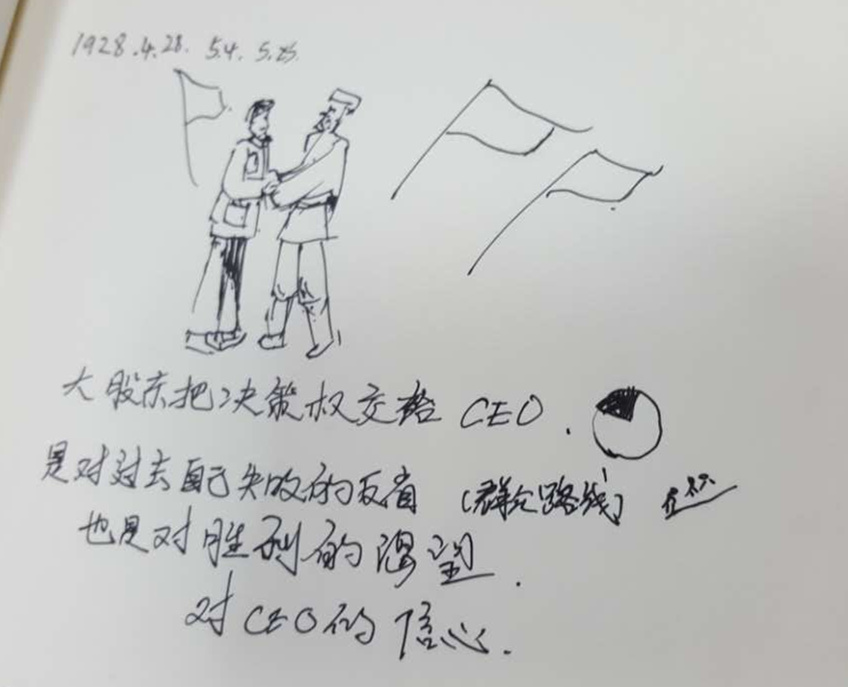 1928.4.28. 5.4. 5.25.
大股东把决策权交给 CEO.
是对过去自己失败的反省 (群众路线)
也是对胜利的渴望.
对CEO的信心.